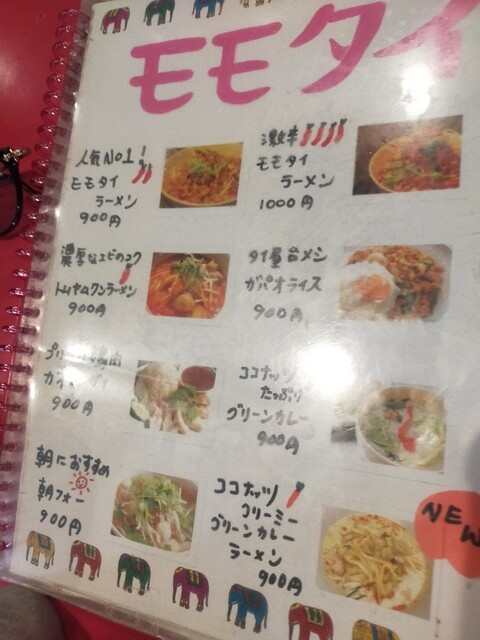 モモタイ
人気No1!
モモタイ
ラーメン
900円
激辛
モモタイ
ラーメン
1000円
濃厚なエビのコク
トムヤムクンラーメン
900円
タイ屋台メシ
ガパオライス
900円
900円
ココナッツ
たっぷり
グリーンカレー
900円
朝におすすめ
朝フォー
900円
ココナッツ
クリーミー
グリーンカレー
ラーメン
900円
NEW